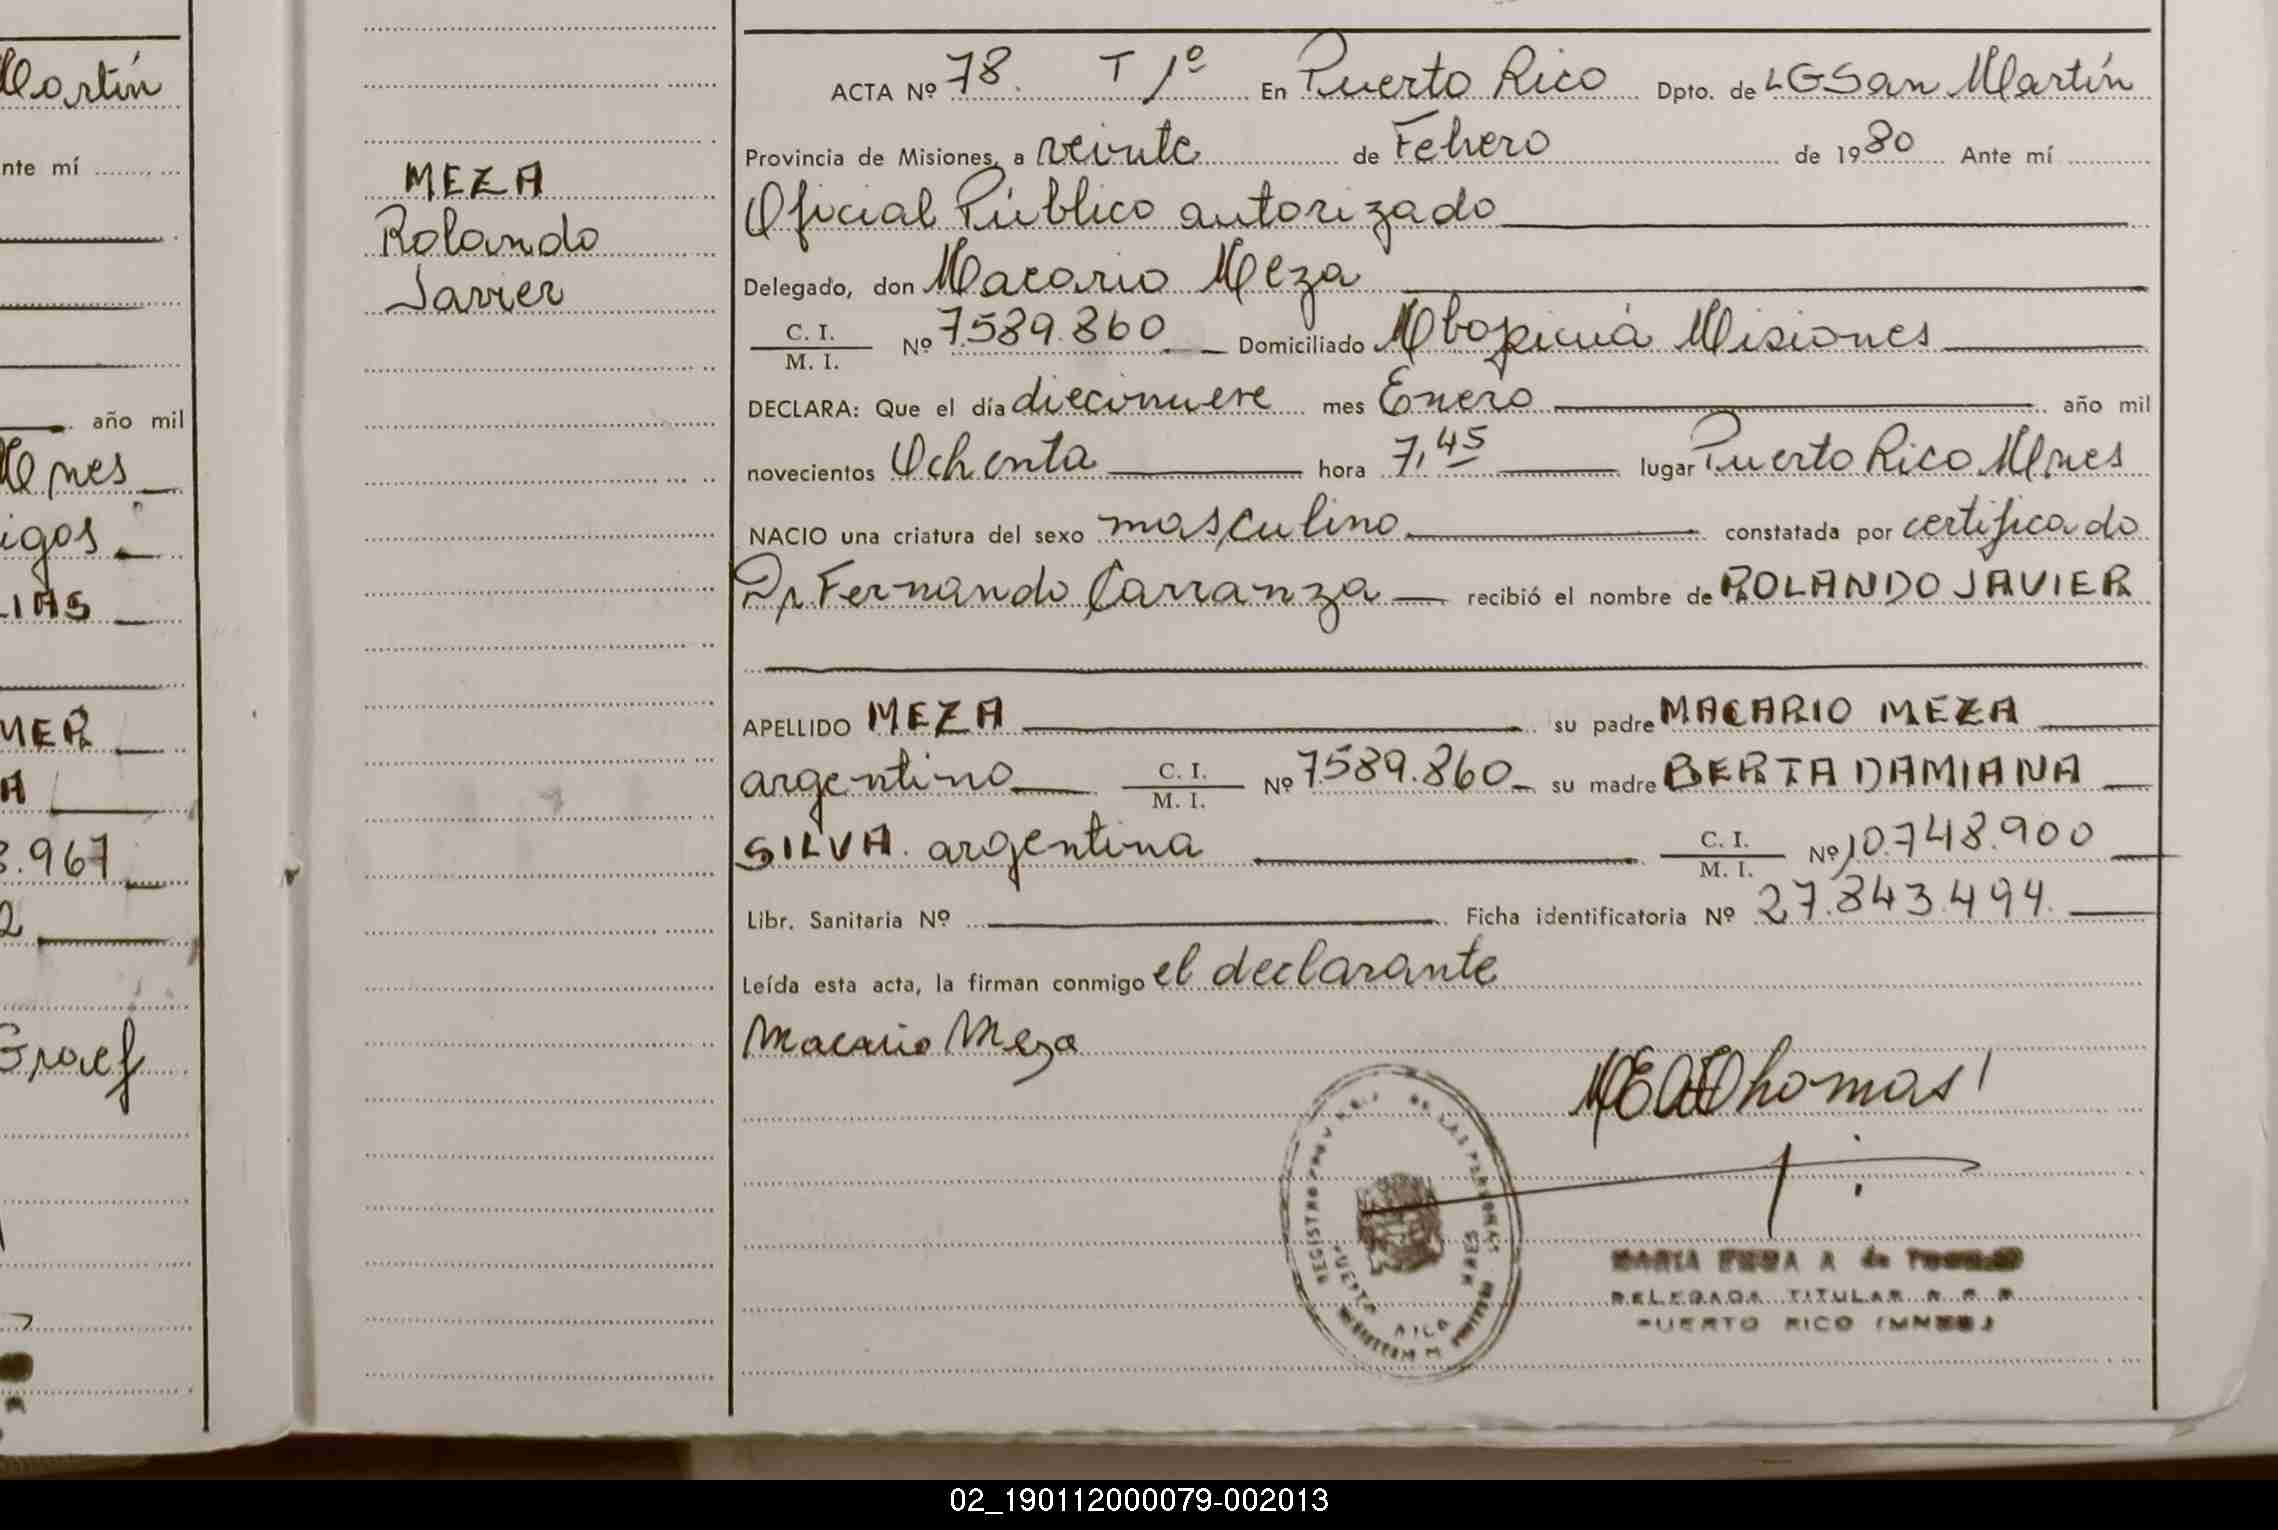 Martín
nte mí
año mil
Mnes
igos
LIAS
MER
A
3.967
2
Graef
MEZA
Rolando
Javier
ACTA Nº 78. T 1º En Puerto Rico Dpto. de LGSan Martín
Provincia de Misiones, a veinte de Febrero de 1980 Ante mí
Oficial Público autorizado
Delegado, don Macario Meza
C. I.
M. I. Nº 7.589.860 Domiciliado Mbopicuá Misiones
DECLARA: Que el día diecinueve mes Enero año mil
novecientos Ochenta hora 7,45 lugar Puerto Rico Mnes
NACIO una criatura del sexo masculino constatada por certificado
Dr Fernando Carranza recibió el nombre de ROLANDO JAVIER
APELLIDO MEZA su padre MACARIO MEZA
argentino C. I.
M. I. Nº 7.589.860 su madre BERTA DAMIANA
SILVA. argentina C. I.
M. I. Nº 10.748.900
Libr. Sanitaria Nº Ficha identificatoria Nº 27.843.494.
Leída esta acta, la firman conmigo el declarante
Macario Meza
Thomas
REGISTRO PROV. DE LAS PERSONAS
PUERTO RICO
MARIA EMMA A de
DELEGADA TITULAR R P P
PUERTO RICO (MNES)
02_190112000079-002013